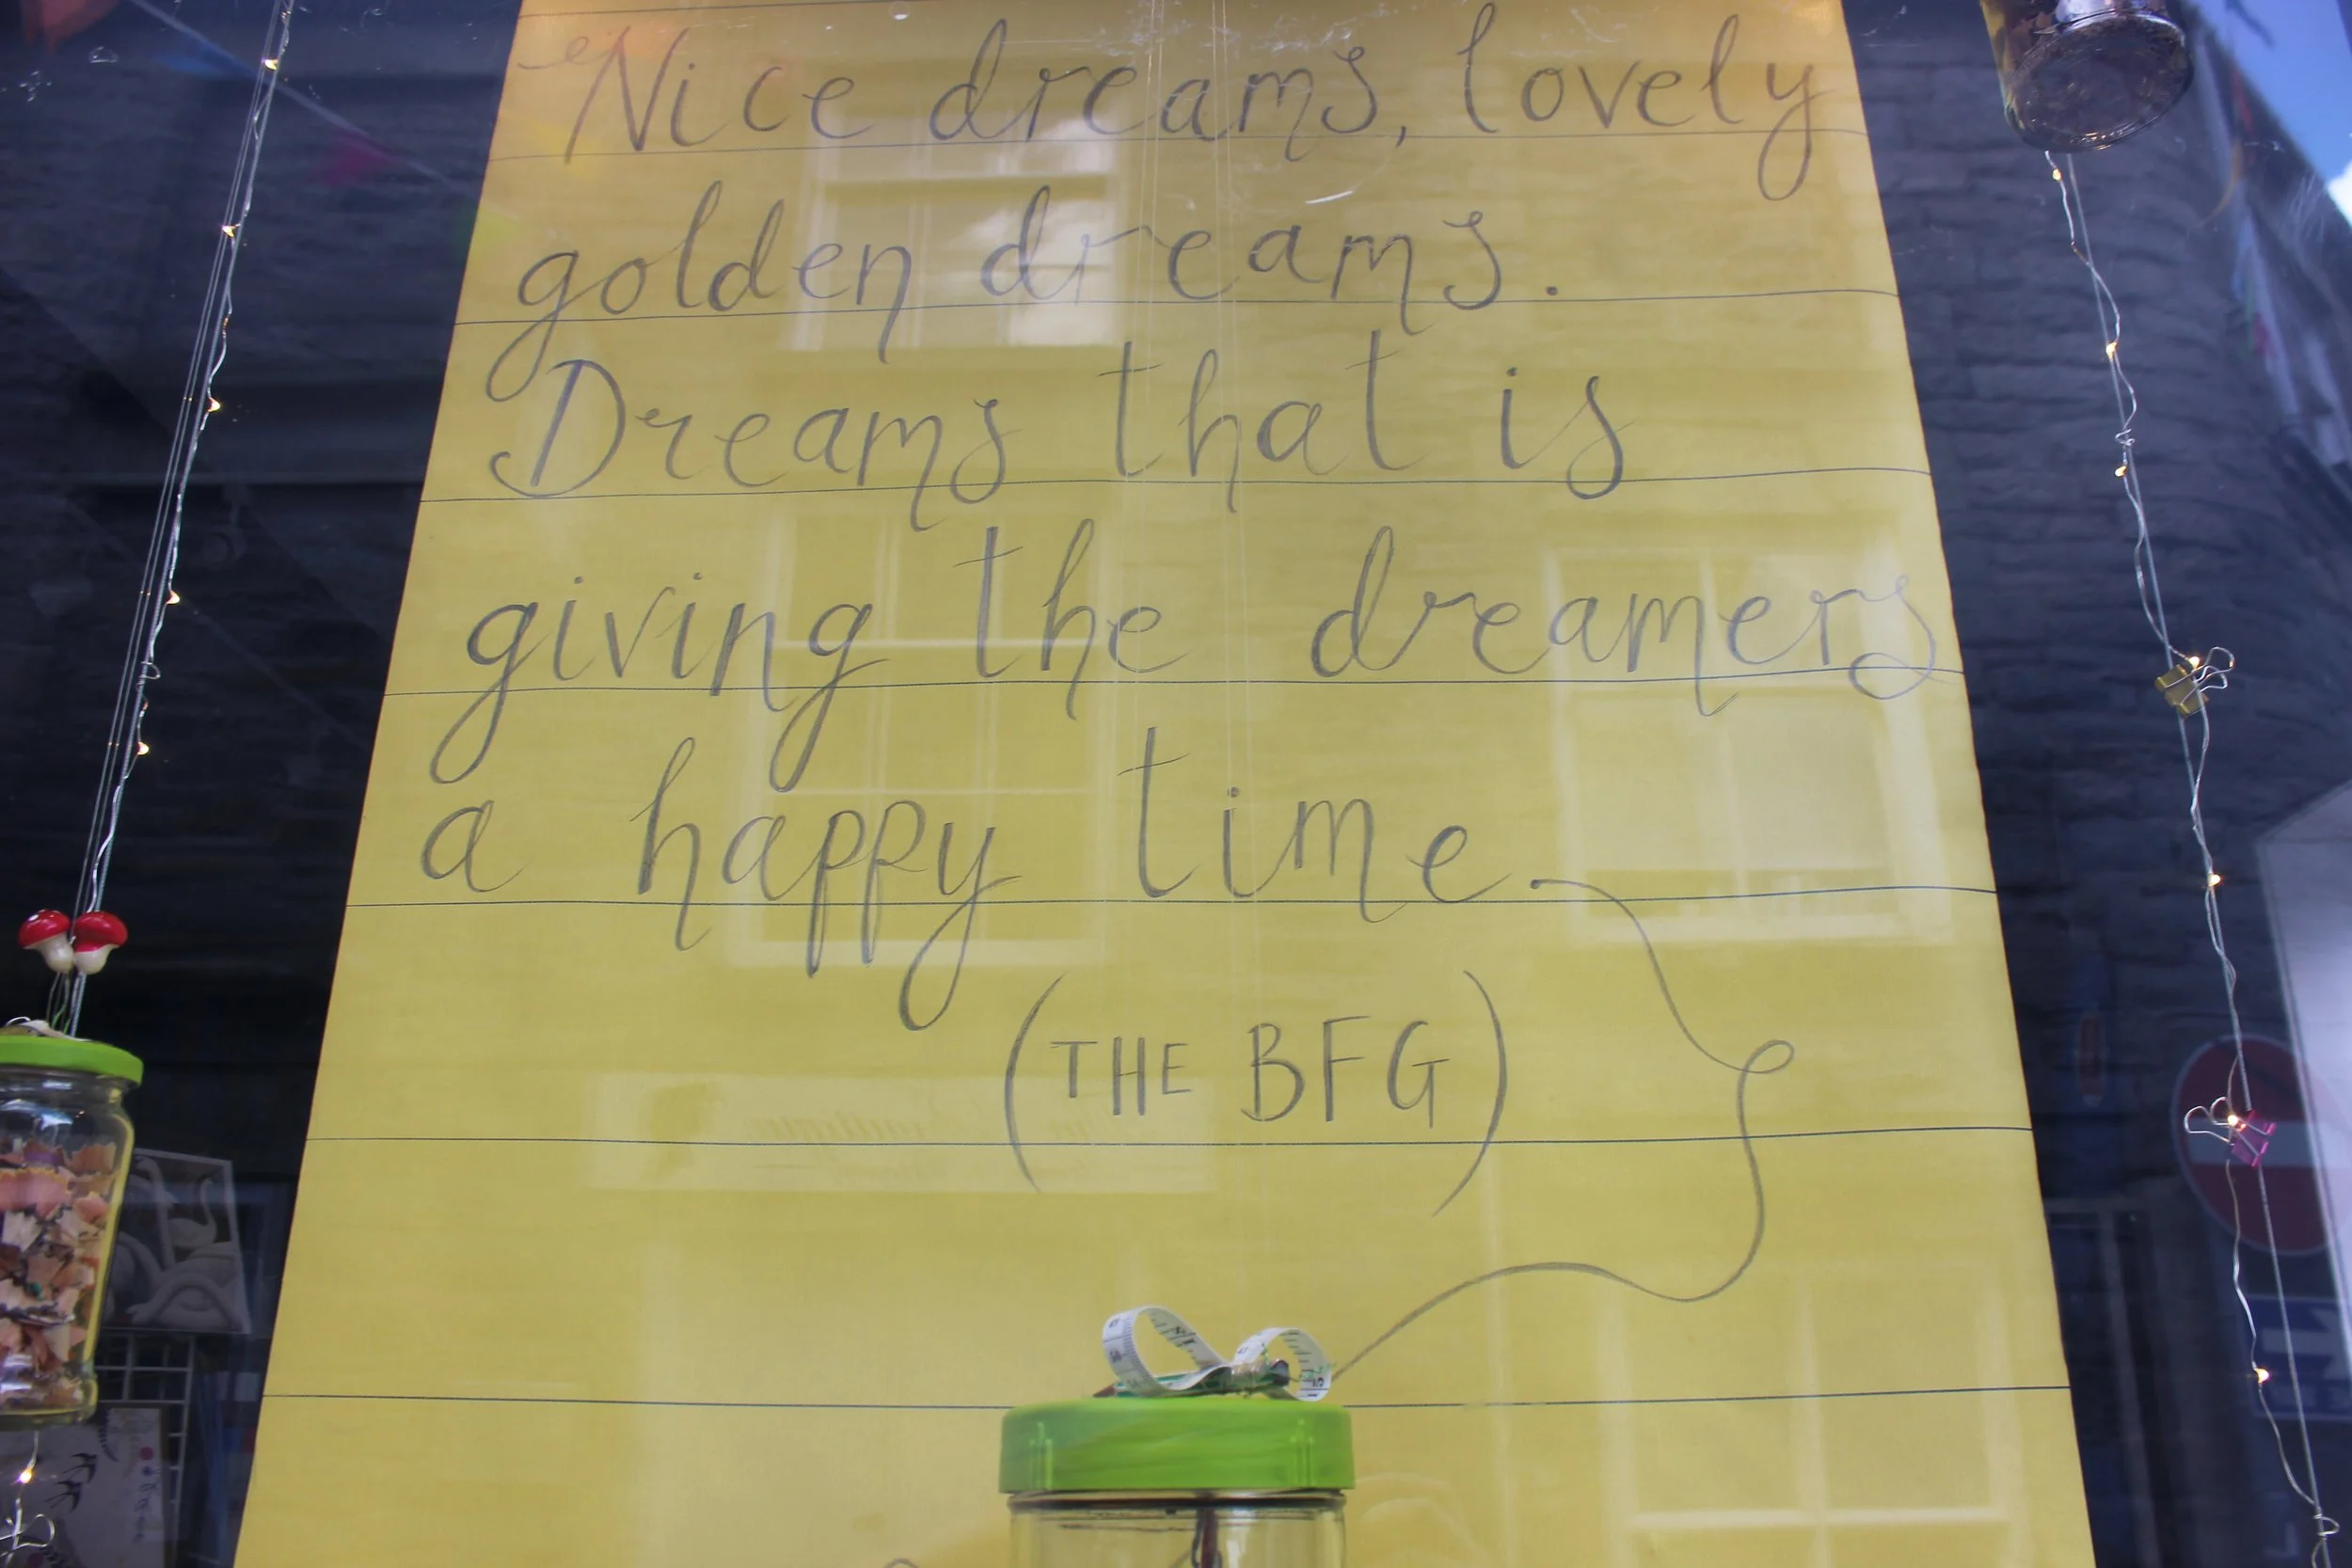 Nice dreams, lovely
golden dreams.
Dreams that is
giving the dreamers
a happy time.
(THE BFG)